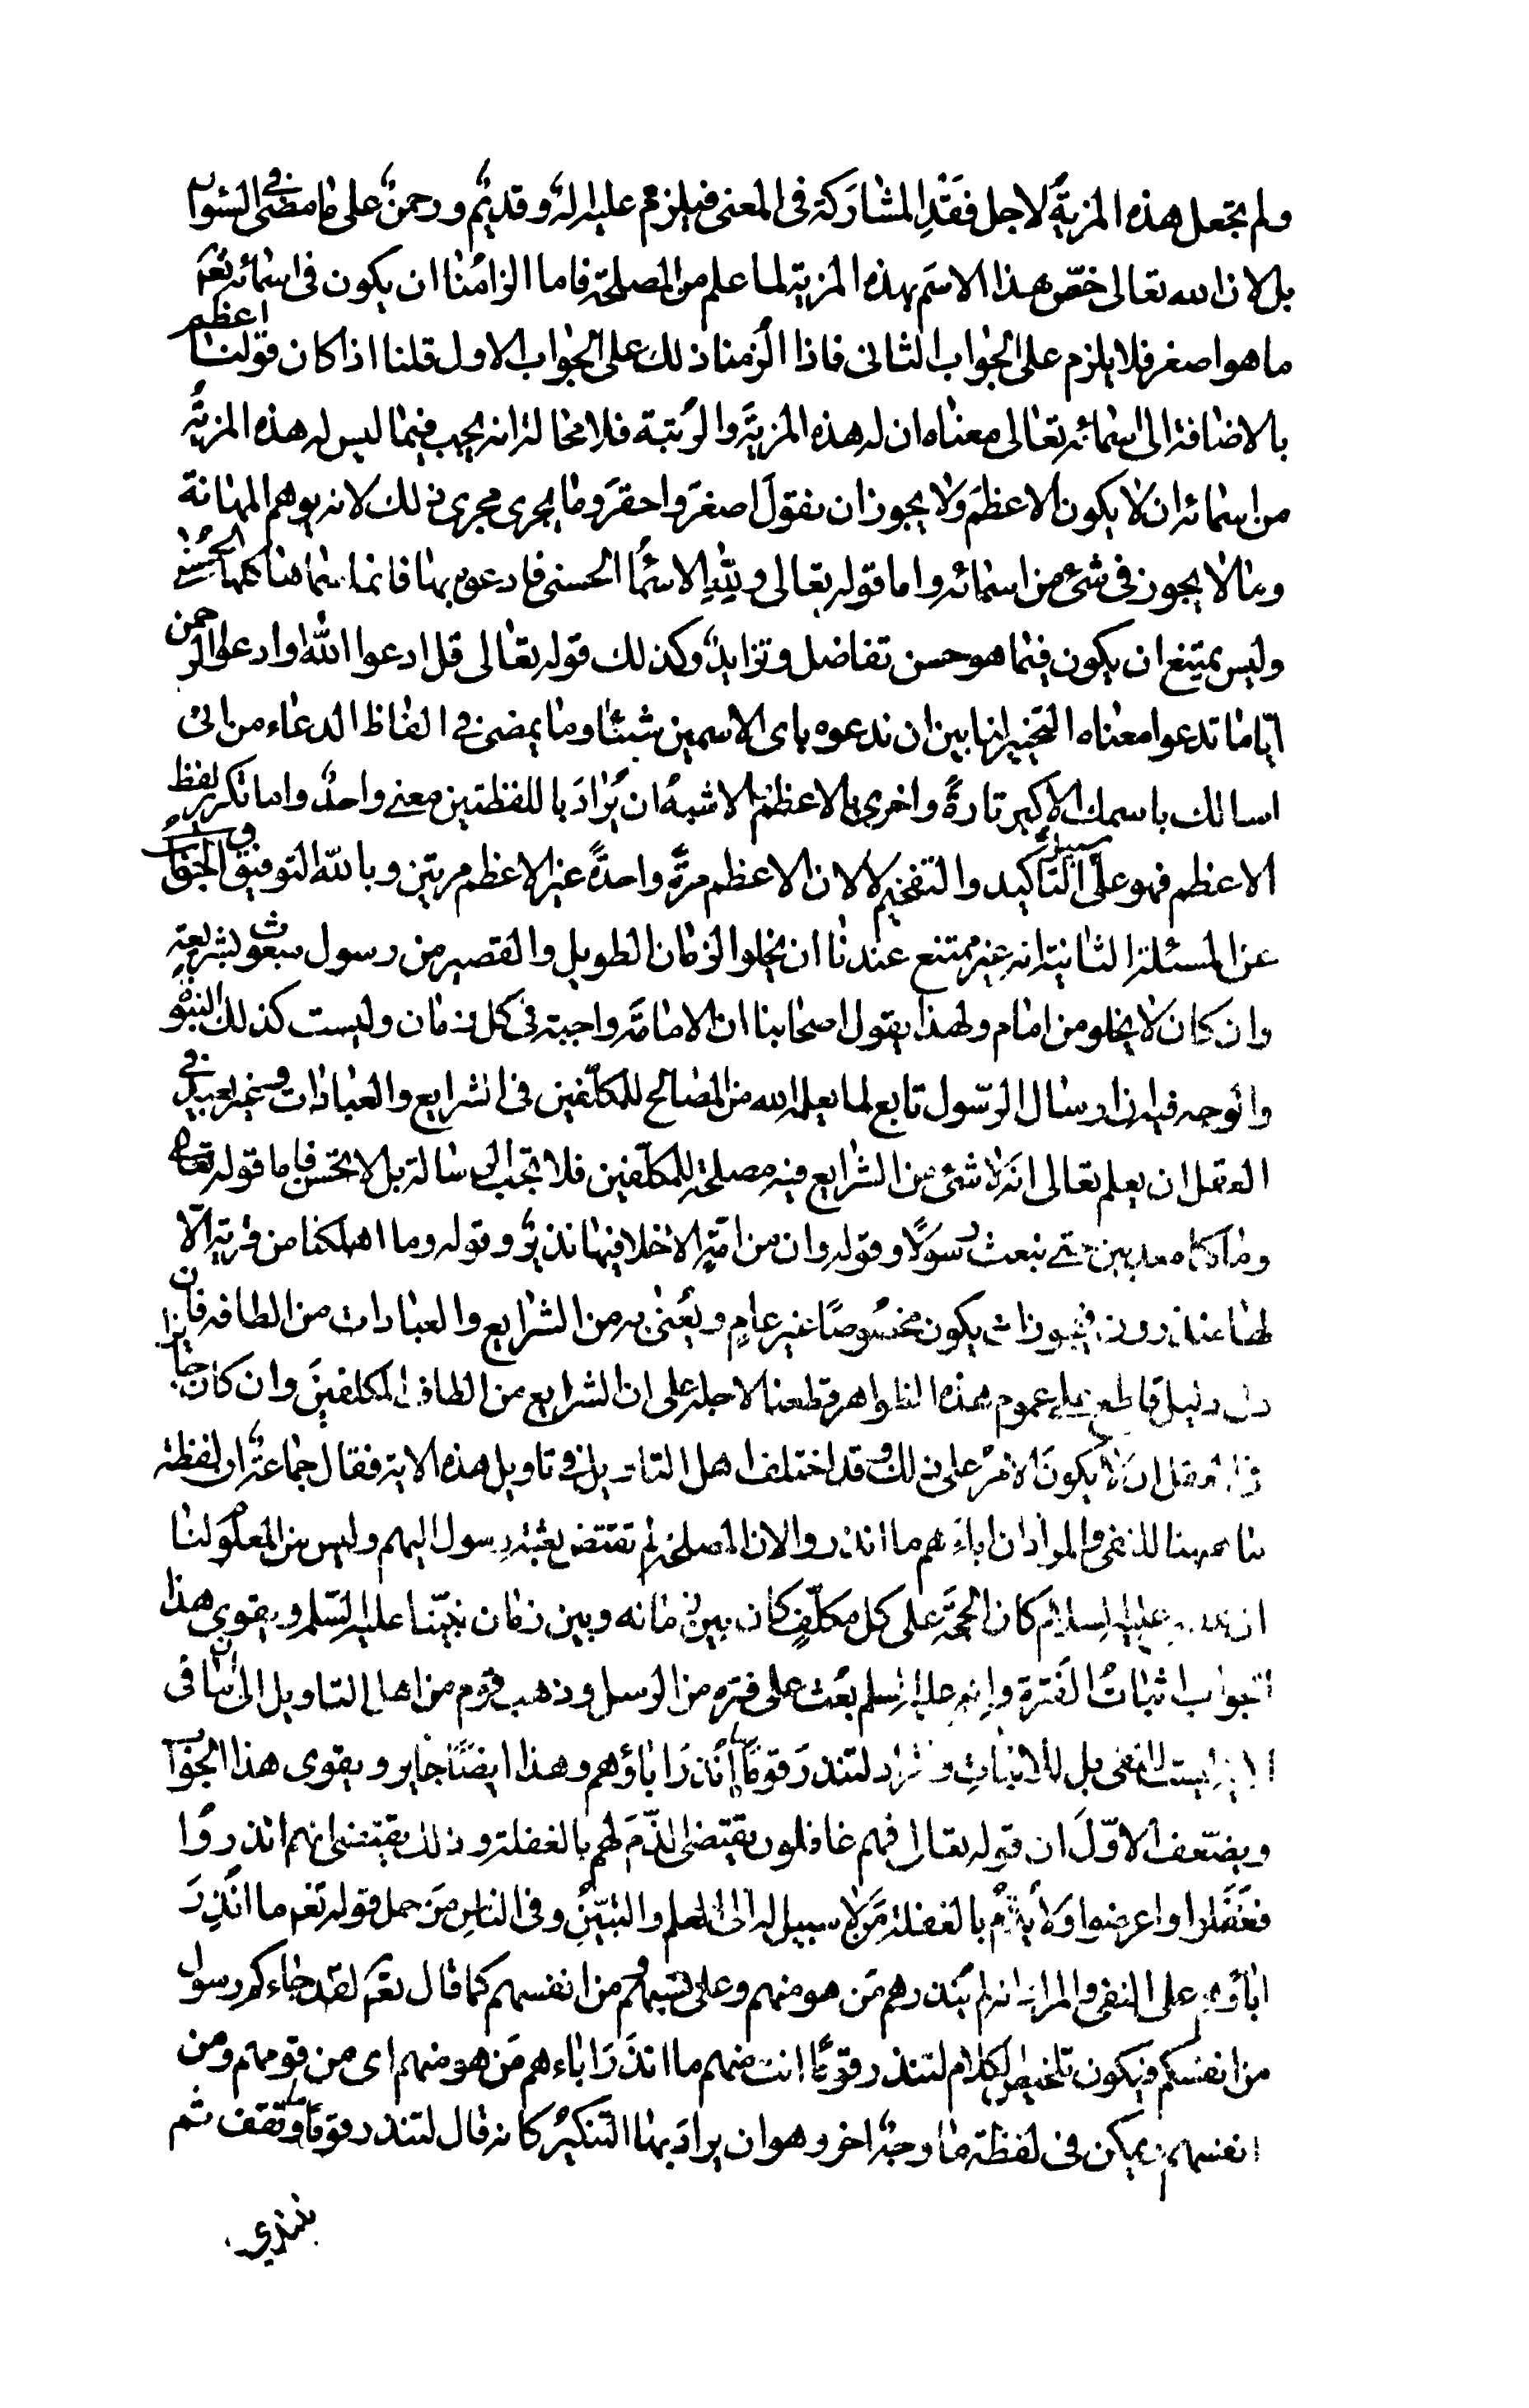 ولم يجعل هذه المزيةَ لاجل فَقْدِ المشارَكة فى المعنى فيلزم عليه اله وقديم ورحمن على ما مضى فى السؤال
بل لان الله تعالى خصّ هذا الاسم بهذه المزية لما علم من المصلحة فاما الزامُنا ان يكون فى اسمائه تعم
ما هو اصغر فلا يلزم على الجواب الثانى فاذا اُلزمنا ذلك على الجواب الاول قلنا اذا كان قولنا اعظم
بالاضافة الى اسمائه تعالى معناه ان له هذه المزيّة والرُتبة فلا محالة انه يجب فيما ليس له هذه المزيّة
من اسمائه ان لا يكون الاعظمَ ولا يجوز ان نقولَ اصغرَ واحقرَ وما يجرى مجرى ذلك لانه يوهم المهانة
وبما لا يجوز فى شئ من اسمائه واما قوله تعالى ولِلّهِ الاسمٓا الحسنى فادعوه بها فانما اسماهنا كلها الحُسنى
وليس يمتنع ان يكون فيما هو حسن تفاضل وتزايد وكذلك قوله تعالى قل ادعوا الله او ادعوا الرحمن
ايّاما تدعوا معناه التخيير انها بين ان ندعوه باى الاسمين شئنا وما يمضى فى الفاظ الدعاء من انى
اسالك باسمك الاكبر تارةً واخرى بالاعظم الاشبهُ ان يُرادَ باللفظتين معنى واحدٌ واما تكرير لفظ
الاعظم فهو على سبيل التأكيد والتفخيم لا لان الاعظم مرّةً واحدةً غير الاعظم مرتين وبالله التوفيق الجواب
عن المسئلة الثانية انه غير ممتنع عندنا ان يخلوا الزمان الطويل والقصير من رسول مبعوث بشريعة
وان كان لا يخلو من امام ولهذا يقول اصحابنا ان الامامَة واجبة فى كل زمان وليست كذلك النبوّة
والوجه فيه ان ارسال الرّسول تابع لما يعلمه الله من المصالح للمكلّفين فى الشرايع والعبادات وغير بعيد فى
العقل ان يعلم تعالى انه لا شئ من الشرايع فيه مصلحة للمكلّفين فلا تجب الرسالة بل لا تحسن فاما قوله تعالى
وما كنا معذبين حتى نبعث رسولًا وقوله وان من امّةٍ الا خلا فيها نذيرٌ وقوله وما اهلكنا من قريةٍ الّا
لها منذرون فيجوز ان يكون مخصُوصًا غير عامٍ ويُعنى به من الشرايع والعبادات من الطافه فان
دل دليل قاطع على عموم هذه الظواهر قطعنا لاجله على ان الشرايع من الطاف المكلفين وان كان جايزا
فى العقل ان لا يكونَ الامرُ على ذلك وقد اختلف اهل التاويل فى تاويل هذه الاية فقال جماعةٌ ان لفظة
ما ههنا للنفى والمراد ان اباءَهم ما انذروا لان المصلحة لم تقتض بعثة رسول اليهم وليس من المعلوم لنا
ان عيسى عليه السلام كان الحجّة على كل مكلّفٍ كان بين زمانه وبين زمان نبيّنا عليه السّلم ويقوى هذا
الجواب اثباتُ الفَترة وانه عليه السلم بُعث على فترة من الرسل وذهب قوم من اهل التاويل الى ان ما فى
الاية ليست للنفى بل للاثباتِ والمراد لتنذرَ قومًا ما اُنذرَ اباؤهم وهذا ايضًا جايز ويقوى هذا الجواب
ويضعّف الاوّلَ ان قوله تعالى فهم غافلون يقتضى الذّمَ لهم بالغفلة وذلك يقتضى انهم انذروُا
فغَفَلوا واعرضوا ولا يُذَمُّ بالغفلة مَن لا سبيل له الى العلم والتبيّنِ وفى الناسِ مَن حمل قوله تعم ما اُنذِرَ
اباؤهم على النفى والمراد انه لم يُنذرهم مَن هو منهم وعلى نسبهم ومن انفسهم كما قال تعم لقد جاءكم رسول
من انفسكم فيكون تلخيص الكلام لتنذر قومًا انت منهم ما انذَرَ اباءهم مَن هو منهم اى من قومهم ومن
انفسهم ويمكن فى لفظة ما وجهٌ اخر وهو ان يرادَ بها التنكيرُ كانه قال لتنذر قومًا ما وتقف ثم
يبتدى